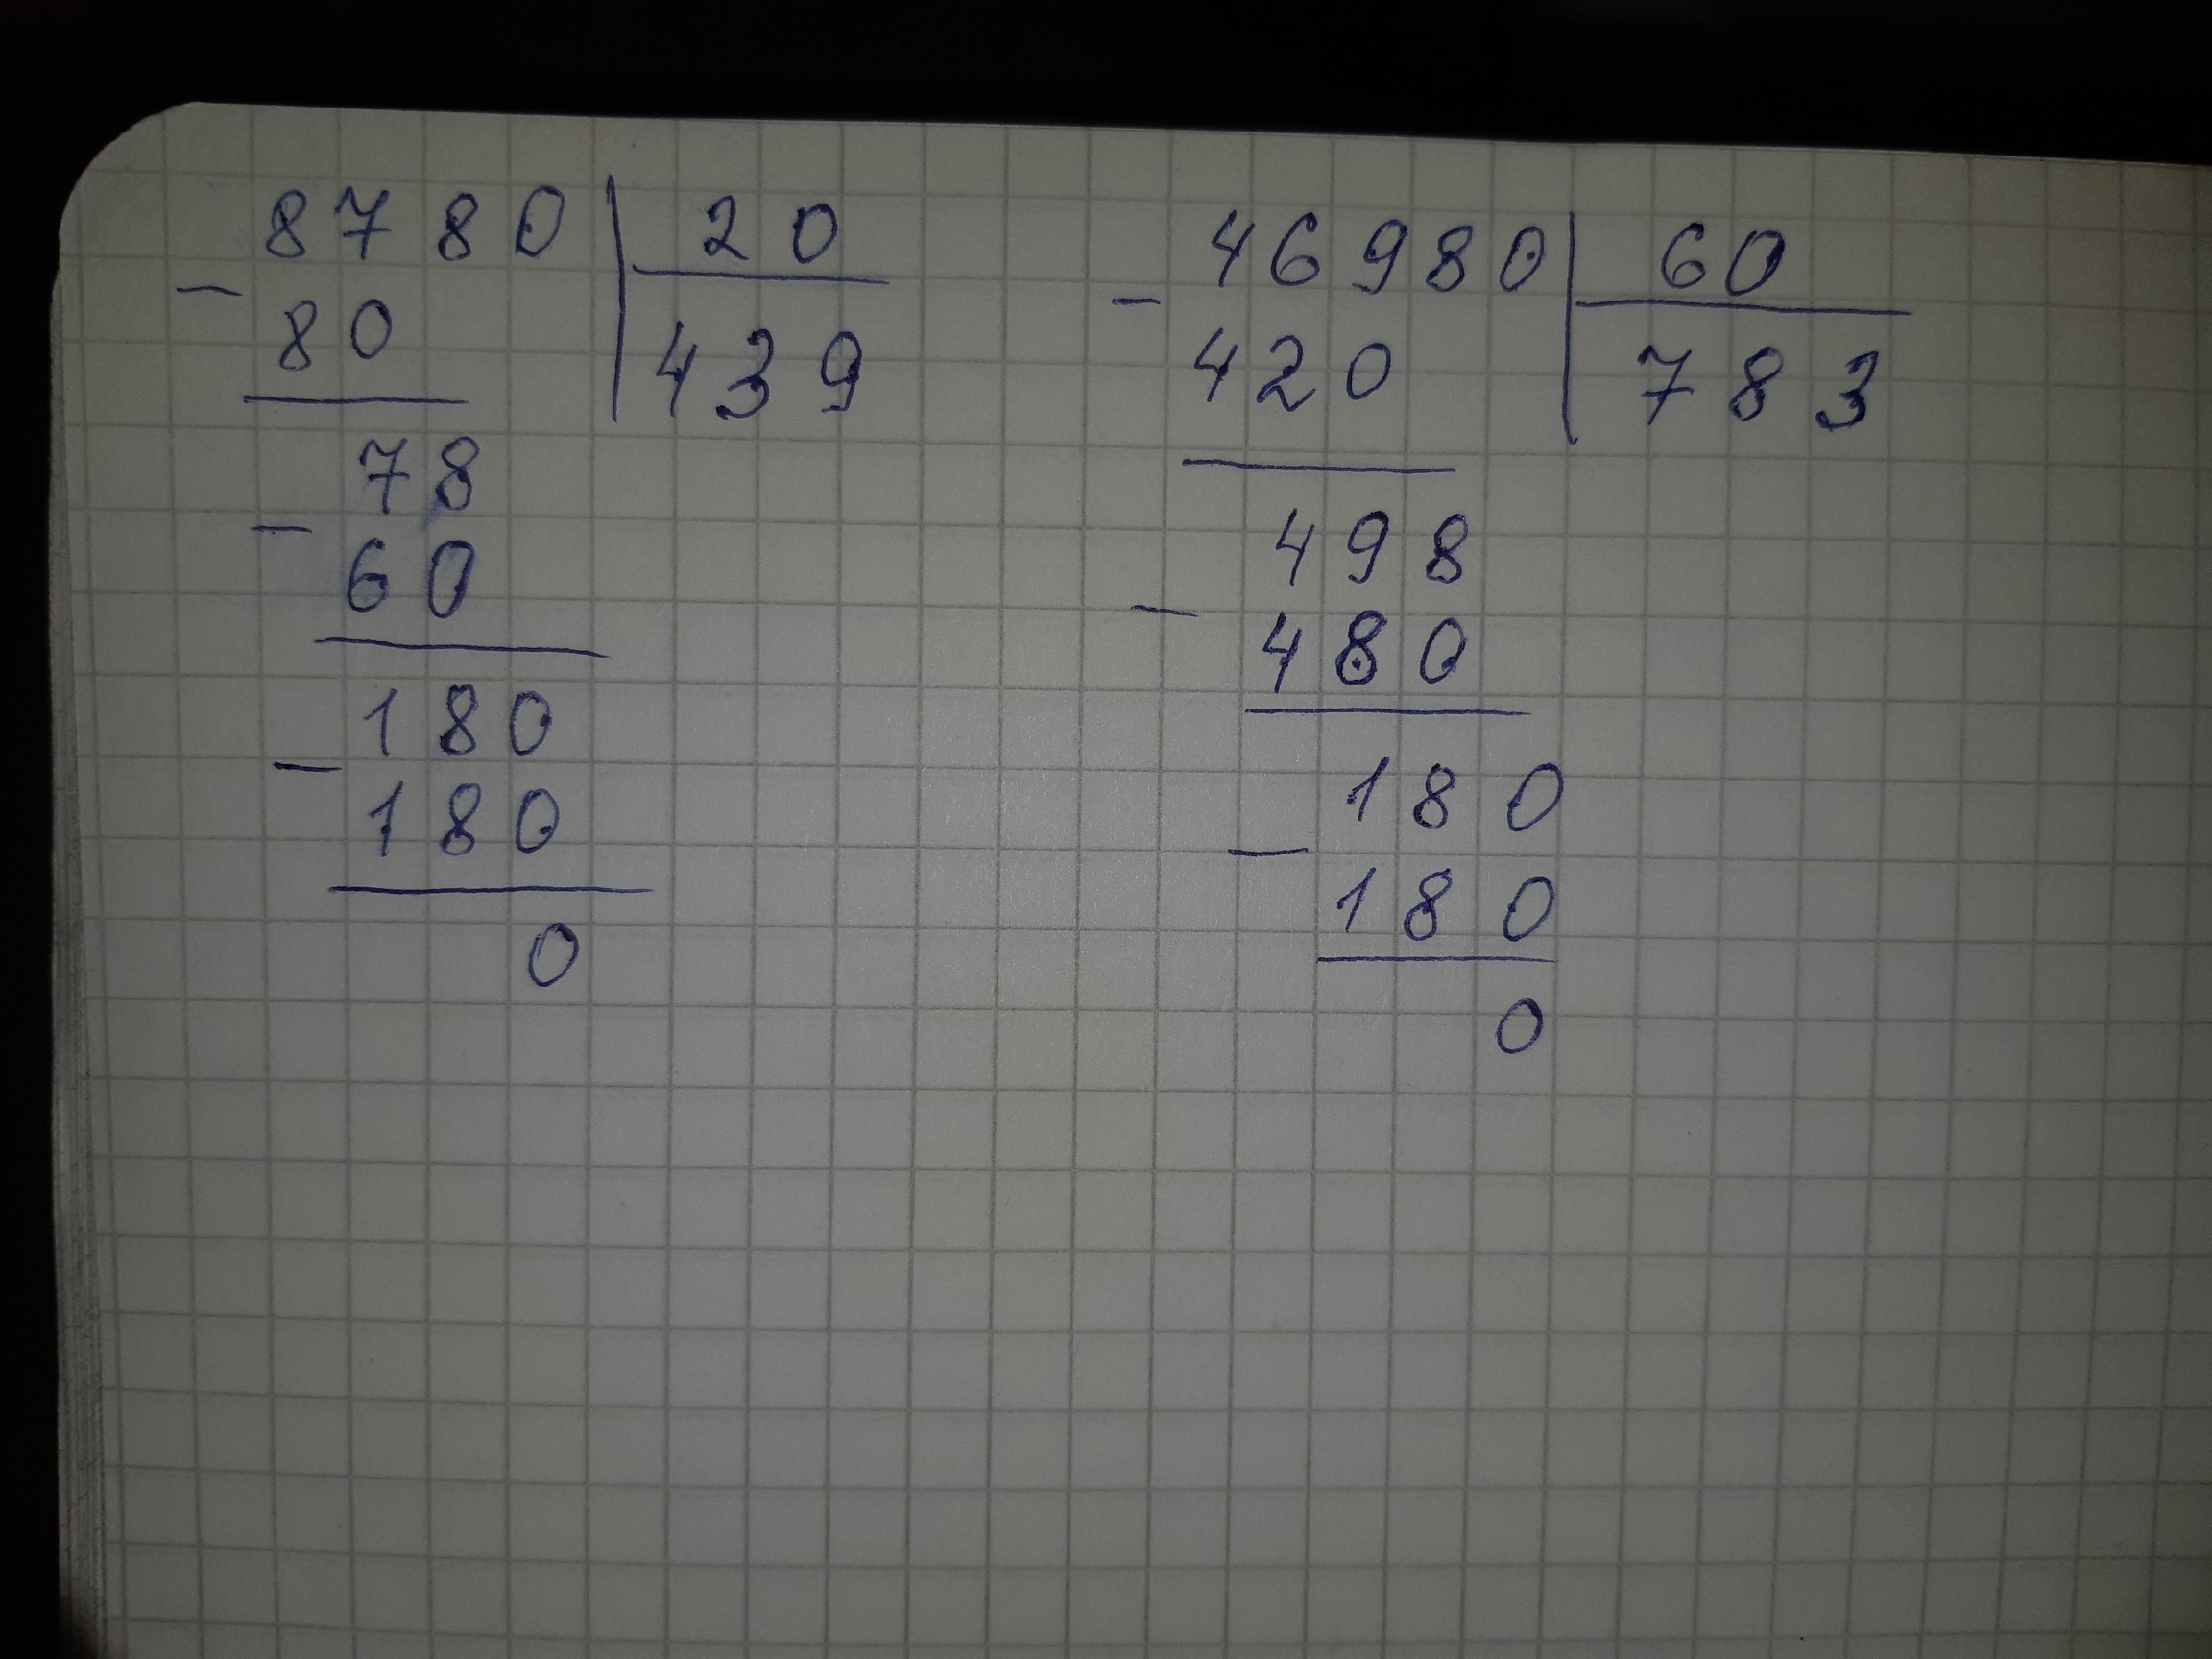 8780 20
- 80 439
78
- 60
180
- 180
0
46980 60
- 420 783
498
- 480
180
- 180
0